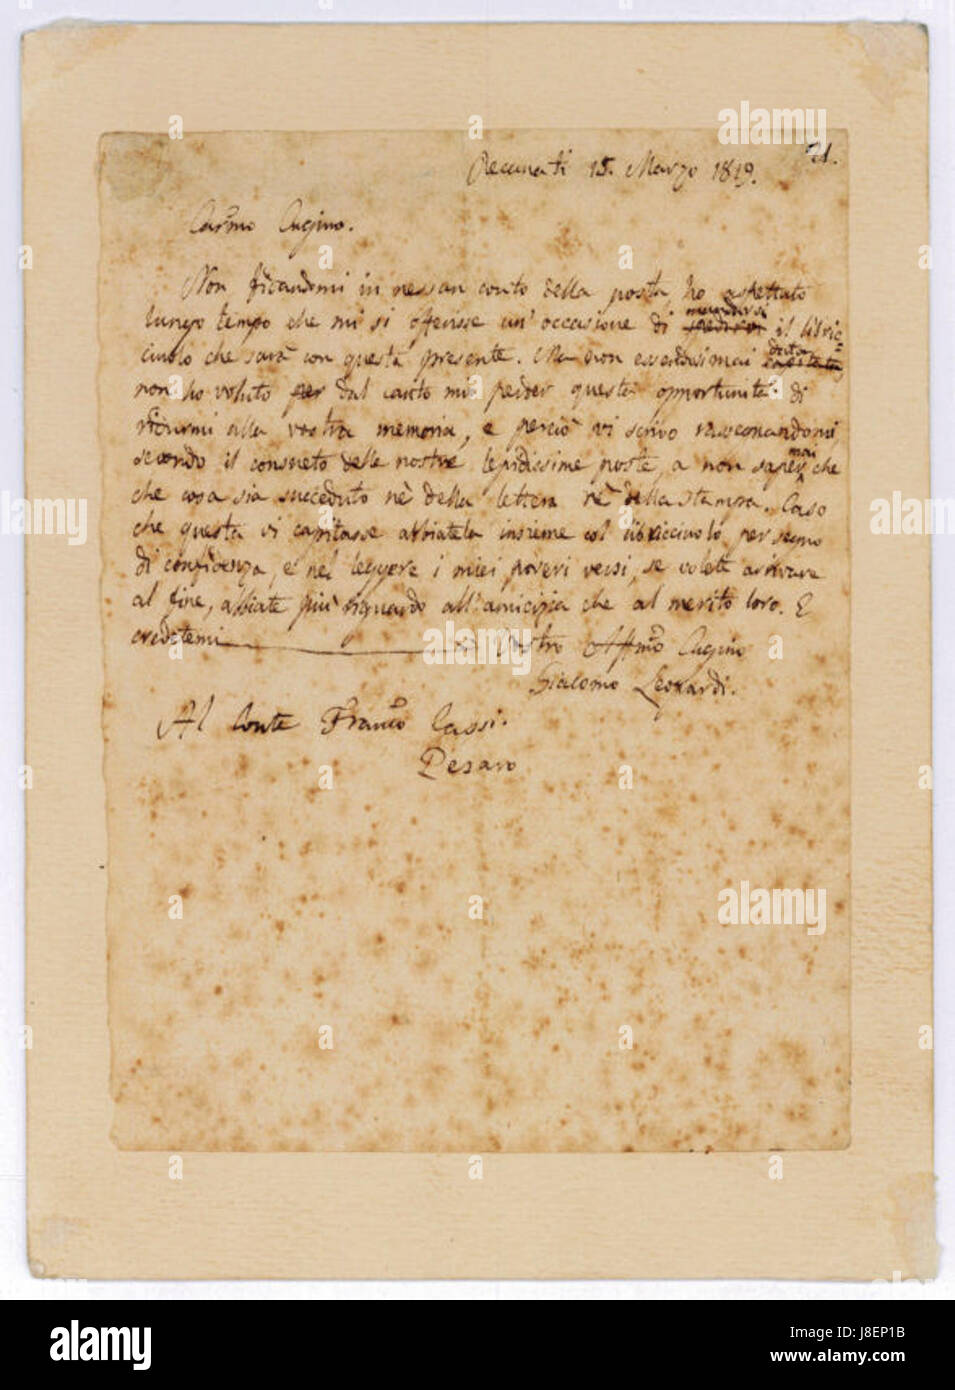 21.
Recanati 15. Marzo 1819.
Carmo Cugino.
Non fidandomi in nessun conto della posta, ho aspettato
lungo tempo che mi si offerisse un'occasione di spedirvi mandarvi il libric=
ciuolo che sarà con questa presente. Ma non essendosimai capitata data,
non ho voluto per dal canto mio perder questa opportunità di
ridurmi alla vostra memoria, e perciò vi scrivo rassegnandomi
secondo il consueto delle nostre lepidissime poste, a non saper mai che
che cosa sia succeduto nè della lettera nè della stampa. Caso
che questa vi capitasse abbiatela insieme col libricciuolo per segno
di confidenza, e nel leggere i miei poveri versi, se volete arrivare
al fine, abbiate più riguardo all'amicizia che al merito loro. E
credetemi Vostro Affmo Cugino
Giacomo Leopardi.
Al Conte Franco Cassi.
Pesaro
alamy
alamy
Image ID: J8EP1B
www.alamy.com